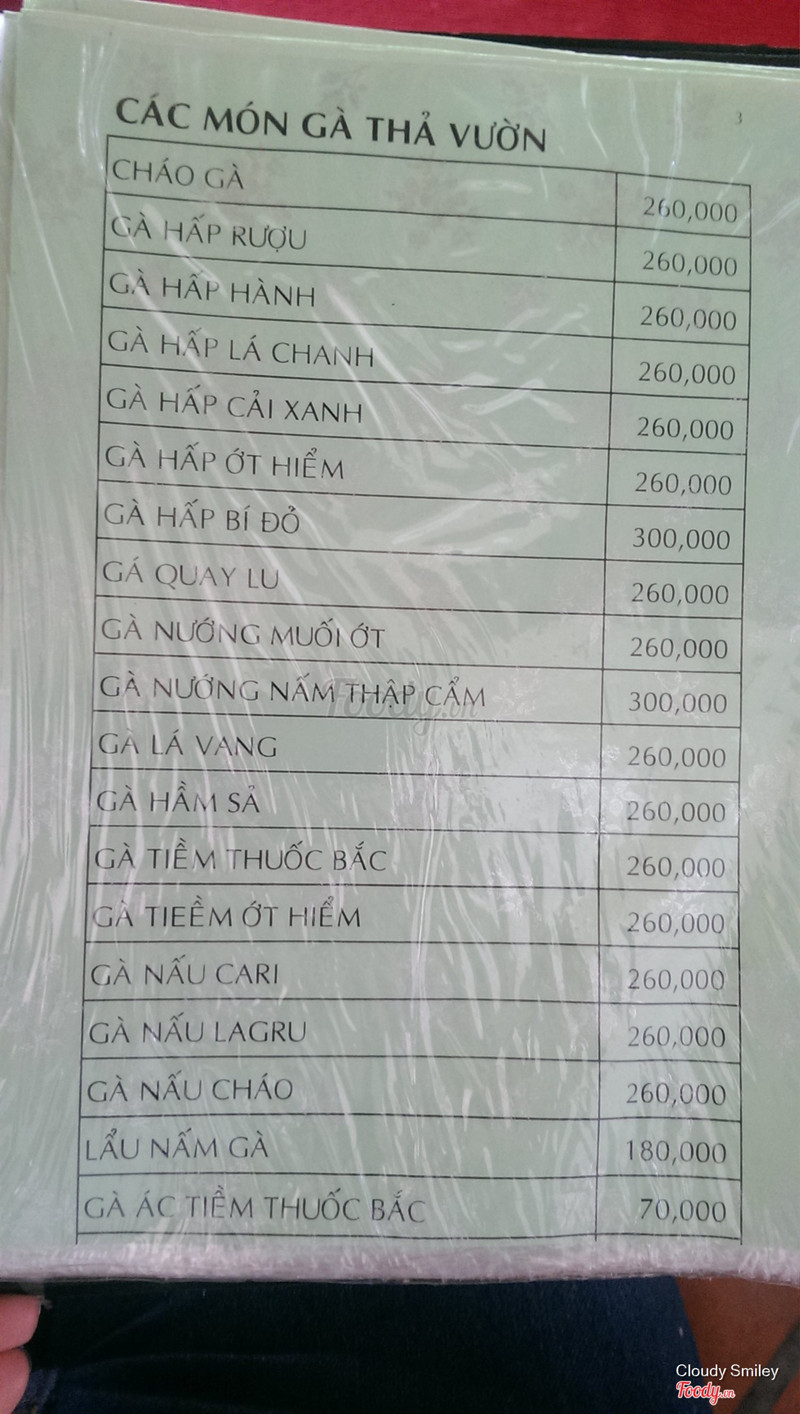 3
CÁC MÓN GÀ THẢ VƯỜN
CHÁO GÀ 260,000
GÀ HẤP RƯỢU 260,000
GÀ HẤP HÀNH 260,000
GÀ HẤP LÁ CHANH 260,000
GÀ HẤP CẢI XANH 260,000
GÀ HẤP ỚT HIỂM 260,000
GÀ HẤP BÍ ĐỎ 300,000
GÁ QUAY LU 260,000
GÀ NƯỚNG MUỐI ỚT 260,000
GÀ NƯỚNG NẤM THẬP CẨM 300,000
GÀ LÁ VANG 260,000
GÀ HẦM SẢ 260,000
GÀ TIỀM THUỐC BẮC 260,000
GÀ TIEỀM ỚT HIỂM 260,000
GÀ NẤU CARI 260,000
GÀ NẤU LAGRU 260,000
GÀ NẤU CHÁO 260,000
LẨU NẤM GÀ 180,000
GÀ ÁC TIỀM THUỐC BẮC 70,000
Foody.vn
Cloudy Smiley
Foody.vn